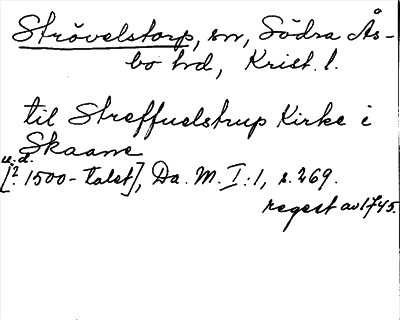 Strövelstorp, sn, Södra Ås-
bo hd, Krist. l.
til Streffuelstrup Kirke i
Skaane
u.d.
[? 1500-talet], Da. M. I:1, s. 269.
regest av 1745.